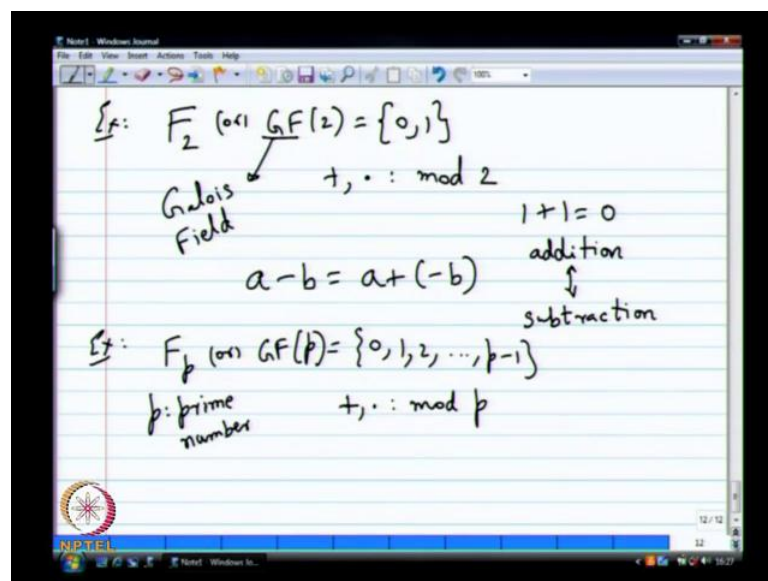 Note1 - Windows Journal
File Edit View Insert Actions Tools Help
100%
Ex: F₂ (or) GF(2) = {0,1}
+, · : mod 2
Galois
Field
1+1=0
addition
↕
subtraction
a-b = a+(-b)
Ex: Fp (or) GF(p) = {0,1,2, ..., p-1}
p: prime
number
+, · : mod p
12/12
12
NPTEL
Note1 - Windows Jo...
16:27